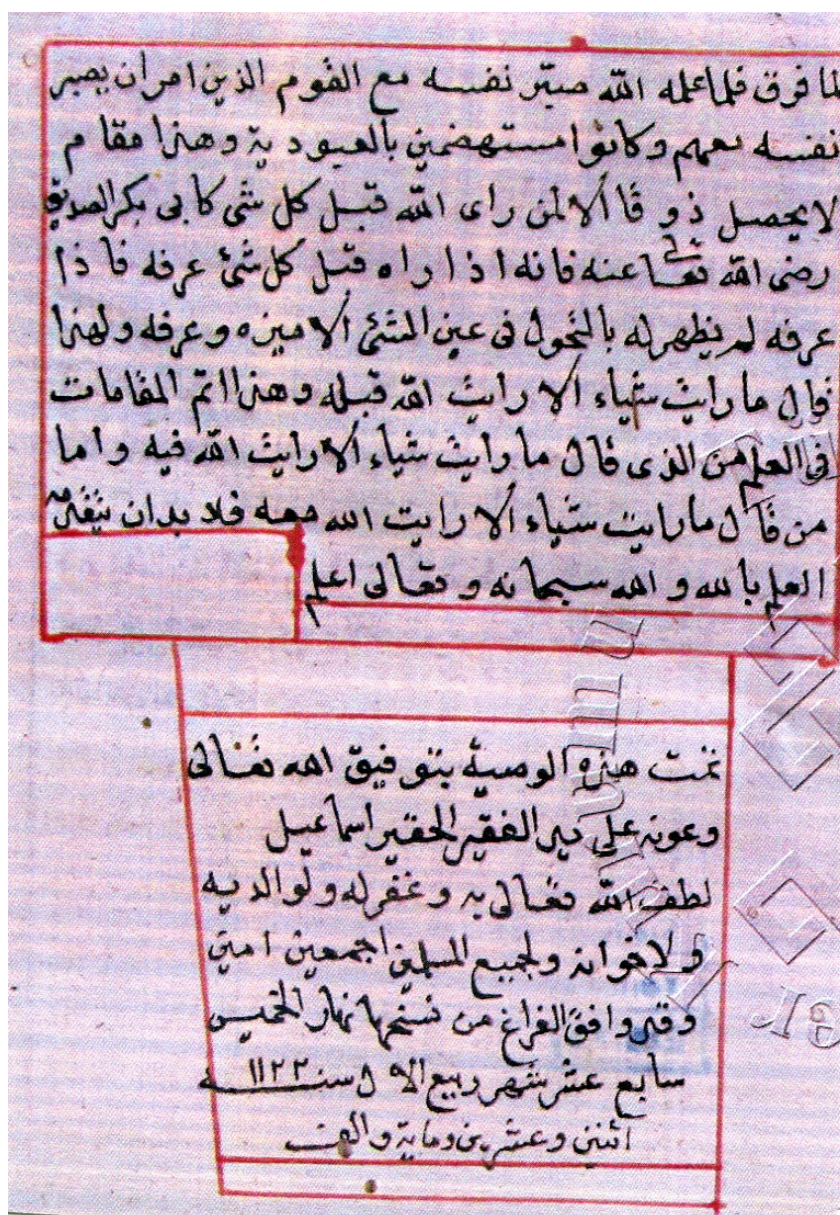 لما فرق فلما علمه الله صبّر نفسه مع القوم الذين امر ان يصبر
نفسه معهم وكانوا مستهضمين بالعبودية وهذا مقام
لا يحصل ذوقا ألا لمن راى الله قبل كل شئ كابى بكر الصديق
رضى الله تعالى عنه فانه اذا راه قبل كل شئ عرفه فاذا
عرفه لم يظهر له بالتحول فى عين الشئ الا ميزه وعرفه ولهذا
قال ما رايت شياء الا رايت الله قبله وهذا اتم المقامات
فى العلم من الذى قال ما رايت شياء الا رايت الله فيه واما
من قال ما رايت شياء ألا رايت الله معه فلا بد ان
العلم بالله والله سبحانه وتعالى اعلم
تمت هذه الوصية بتوفيق الله تعالى
وعونه على يد الفقير الحقير اسماعيل
لطف الله تعالى به وغفر له ولوالديه
ولاخوانه ولجميع المسلمين اجمعين امين
وقد وافق الفراغ من نسخها نهار الخميس
سابع عشر شهر ربيع الاول سنة ١١٢٢
اثنين وعشرين وماية والف